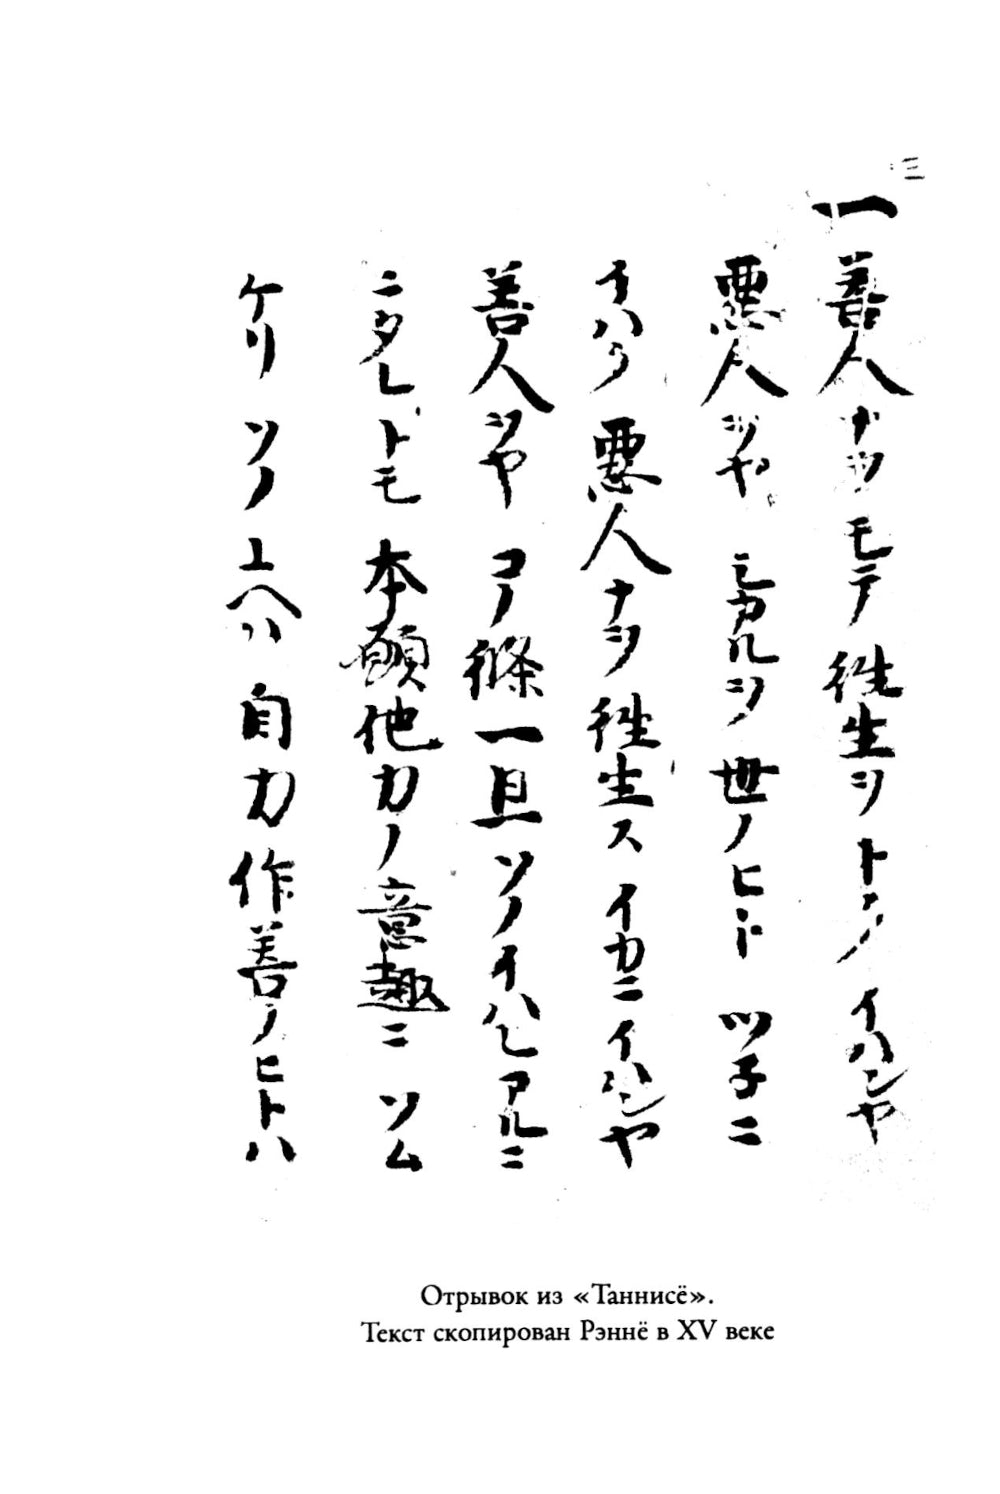 三
一善人ナヲモテ往生ヲトク イハンヤ
悪人ヲヤ シカルヲ世ノヒト ツ子ニ
イハク悪人ナヲ往生ス イカニイハンヤ
善人ヲヤ コノ條一旦ソノイハレアルニ
ニタレトモ本願他力ノ意趣ニソム
ケリ ソノ上ヘハ自力作善ノヒトハ
Отрывок из «Таннисё».
Текст скопирован Рэннё в XV веке